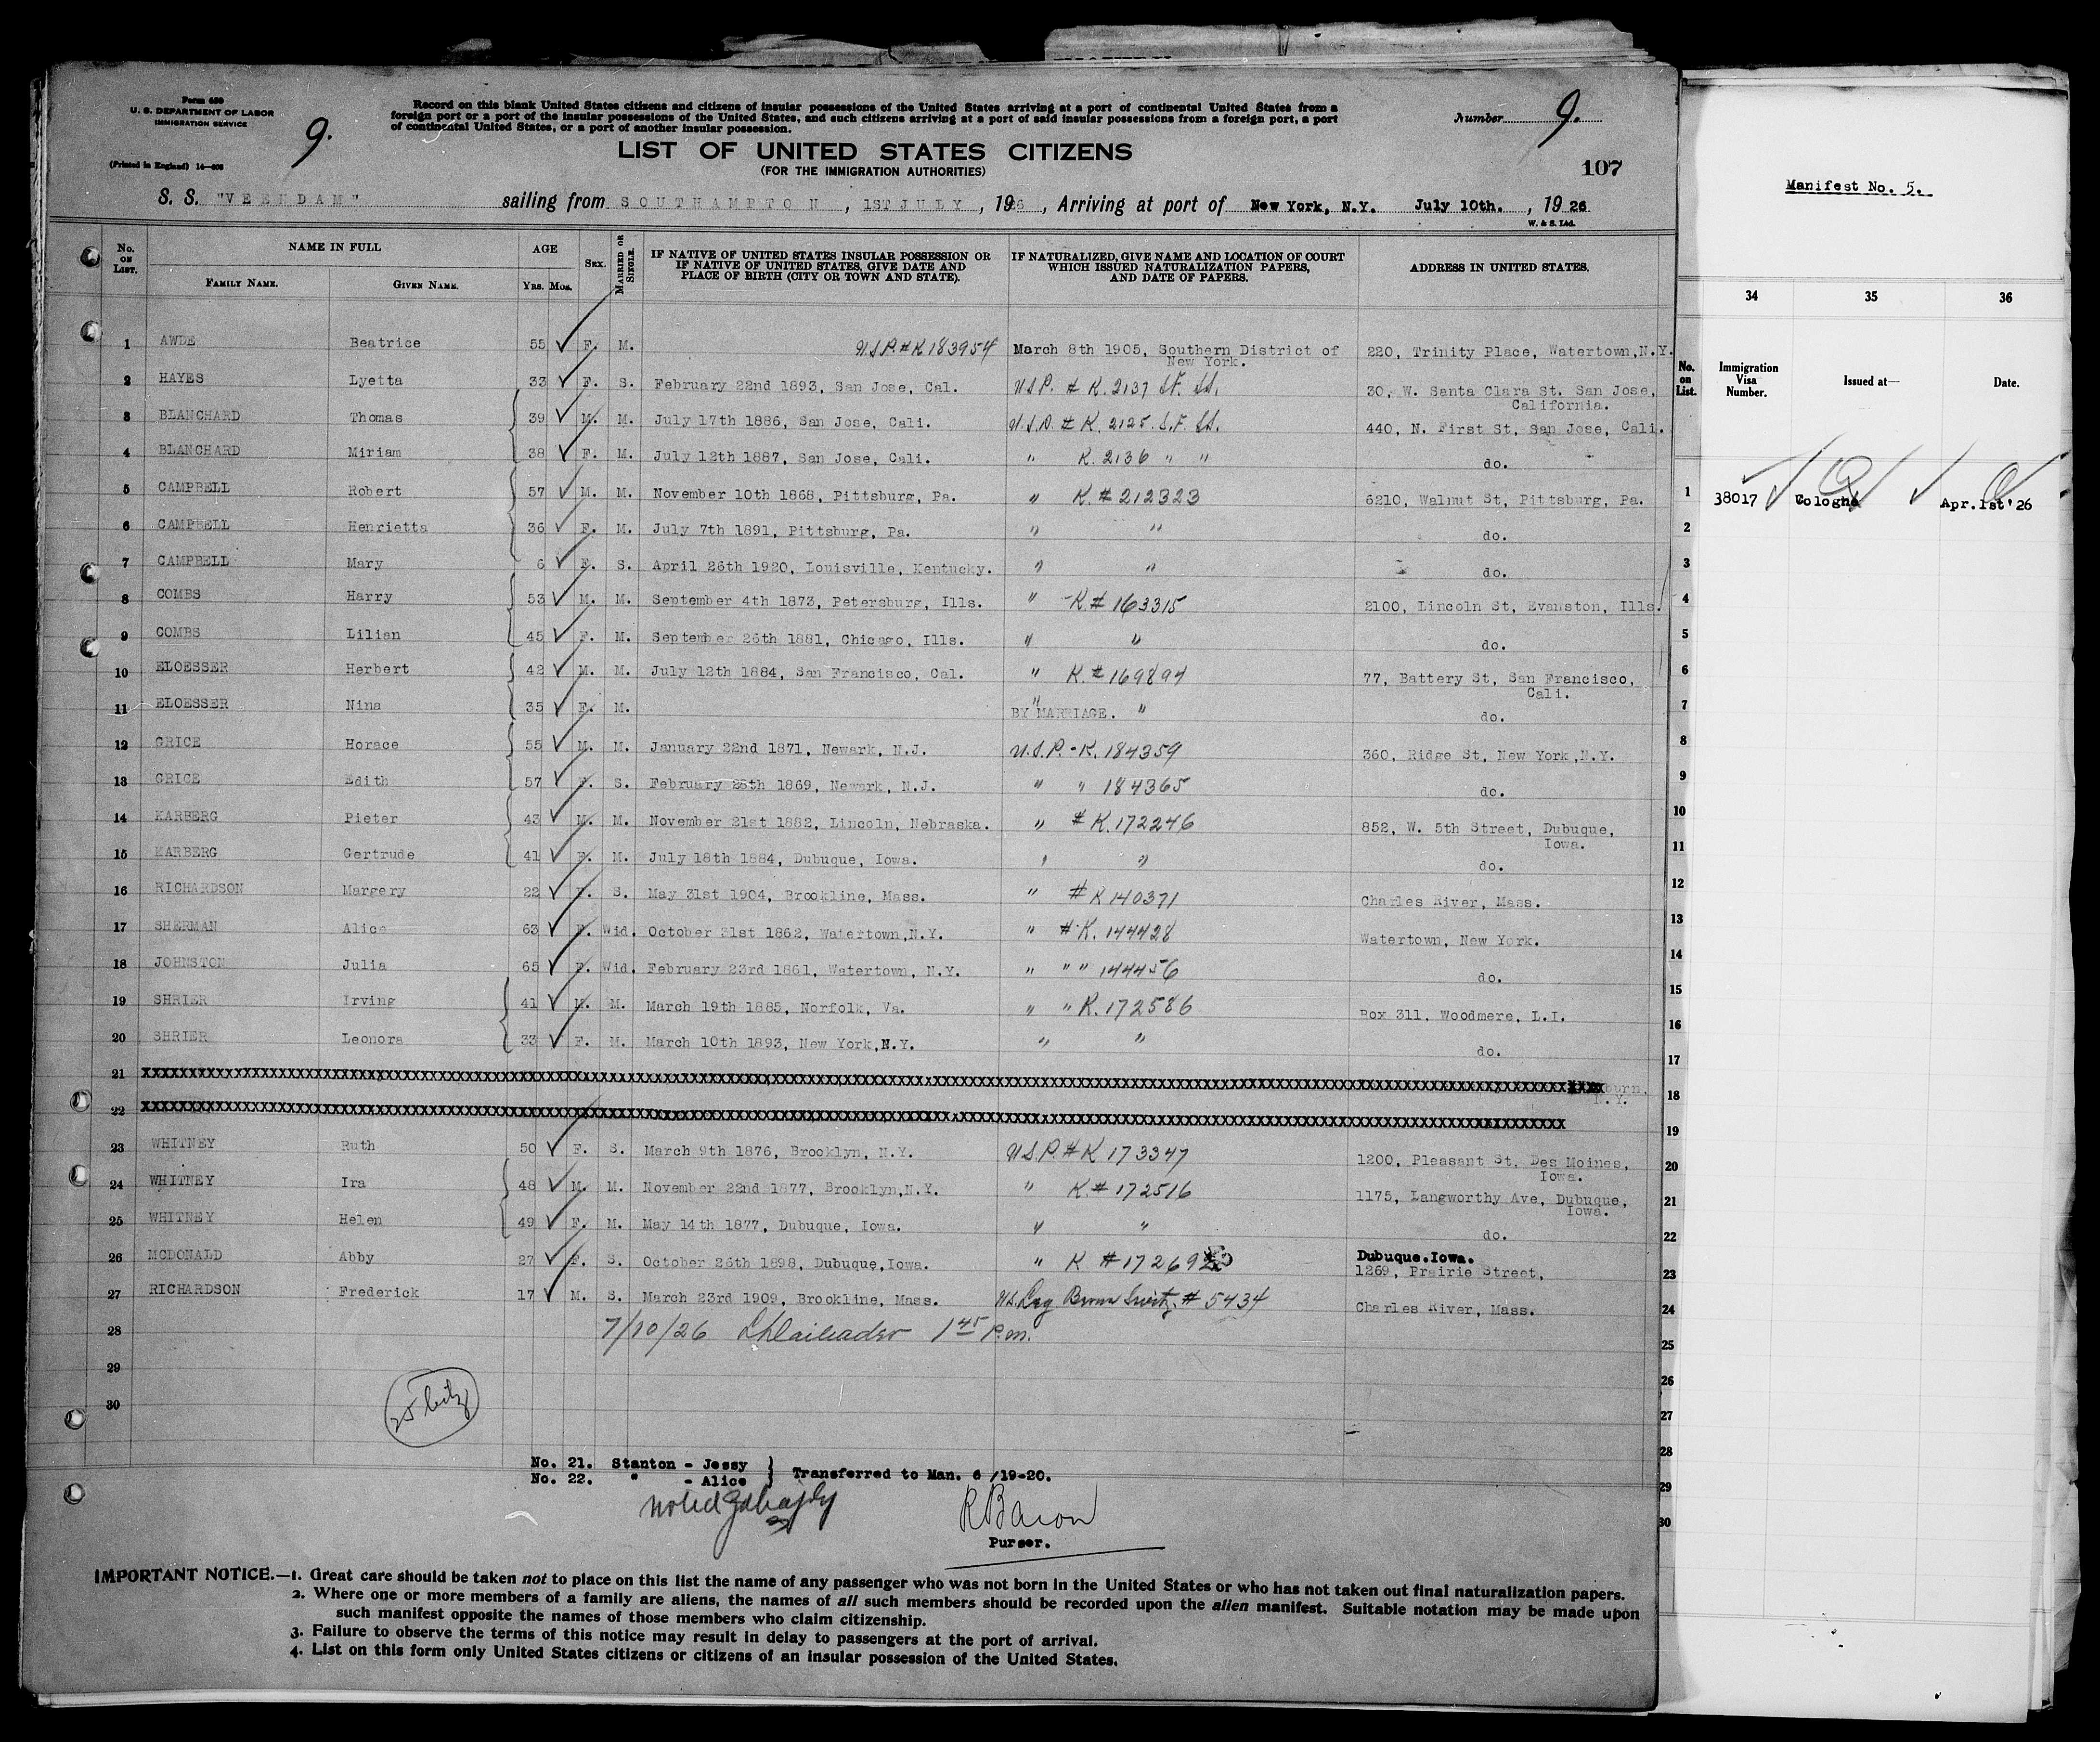 Form 630
U. S. DEPARTMENT OF LABOR
IMMIGRATION SERVICE
(Printed in England) 14—608
9.
Record on this blank United States citizens and citizens of insular possessions of the United States arriving at a port of continental United States from a
foreign port or a port of the insular possessions of the United States, and such citizens arriving at a port of said insular possessions from a foreign port, a port
of continental United States, or a port of another insular possession.
Number 9.
LIST OF UNITED STATES CITIZENS
(FOR THE IMMIGRATION AUTHORITIES)
107
S. S. "VEENDAM" sailing from SOUTHAMPTON, 1ST JULY, 1926, Arriving at port of New York, N.Y. July 10th., 1926
W. & S. Ltd.
No. on List. NAME IN FULL AGE Sex. Married or Single. IF NATIVE OF UNITED STATES INSULAR POSSESSION OR IF NATIVE OF UNITED STATES, GIVE DATE AND PLACE OF BIRTH (CITY OR TOWN AND STATE). IF NATURALIZED, GIVE NAME AND LOCATION OF COURT WHICH ISSUED NATURALIZATION PAPERS, AND DATE OF PAPERS. ADDRESS IN UNITED STATES.
Family Name. Given Name. Yrs. Mos.
1 AWDE Beatrice 55 F. M. U.S.P. # K 183954 March 8th 1905, Southern District of New York. 220, Trinity Place, Watertown, N.Y.
2 HAYES Lyetta 33 F. S. February 22nd 1893, San Jose, Cal. U.S.P. # K. 2137 S.F. 30, W. Santa Clara St. San Jose, California.
3 BLANCHARD Thomas 39 M. M. July 17th 1886, San Jose, Cali. U.S.P. # K. 2125. S.F. 440, N. First St, San Jose, Cali.
4 BLANCHARD Miriam 38 F. M. July 12th 1887, San Jose, Cali. " K. 2136 " " do.
5 CAMPBELL Robert 57 M. M. November 10th 1868, Pittsburg, Pa. " K # 212323 6210, Walnut St, Pittsburg, Pa.
6 CAMPBELL Henrietta 36 F. M. July 7th 1891, Pittsburg, Pa. " " do.
7 CAMPBELL Mary 6 F. S. April 26th 1920, Louisville, Kentucky. " " do.
8 COMBS Harry 53 M. M. September 4th 1873, Petersburg, Ills. " K # 163315 2100, Lincoln St, Evanston, Ills.
9 COMBS Lilian 45 F. M. September 26th 1881, Chicago, Ills. " " do.
10 ELOESSER Herbert 42 M. M. July 12th 1884, San Francisco, Cal. " K. # 169894 77, Battery St, San Francisco, Cali.
11 ELOESSER Nina 35 F. M. " BY MARRIAGE. " do.
12 GRICE Horace 55 M. M. January 22nd 1871, Newark, N.J. U.S.P. - K. 184359 360, Ridge St, New York, N.Y.
13 GRICE Edith 57 F. S. February 28th 1869, Newark, N.J. " " 184365 do.
14 KARBERG Pieter 43 M. M. November 21st 1882, Lincoln, Nebraska. " # K. 172246 852, W. 5th Street, Dubuque, Iowa.
15 KARBERG Gertrude 41 F. M. July 18th 1884, Dubuque, Iowa. " " do.
16 RICHARDSON Margery 22 F. S. May 31st 1904, Brookline, Mass. " # K 140371 Charles River, Mass.
17 SHERMAN Alice 63 F. Wid. October 31st 1862, Watertown, N.Y. " # K. 144428 Watertown, New York.
18 JOHNSTON Julia 65 F. Wid. February 23rd 1861, Watertown, N.Y. " " " 144456 do.
19 SHRIER Irving 41 M. M. March 19th 1885, Norfolk, Va. " " K. 172586 Box 311, Woodmere, L.I.
20 SHRIER Leonora 33 F. M. March 10th 1893, New York, N.Y. " " do.
21
22 N.Y.
23 WHITNEY Ruth 50 F. S. March 9th 1876, Brooklyn, N.Y. U.S.P. # K 173347 1200, Pleasant St. Des Moines, Iowa.
24 WHITNEY Ira 48 M. M. November 22nd 1877, Brooklyn, N.Y. " K. # 172516 1175, Langworthy Ave, Dubuque, Iowa.
25 WHITNEY Helen 49 F. M. May 14th 1877, Dubuque, Iowa. " " do.
26 MCDONALD Abby 27 F. S. October 26th 1898, Dubuque, Iowa. " K # 17269 Dubuque. Iowa. 1269, Prairie Street,
27 RICHARDSON Frederick 17 M. S. March 23rd 1909, Brookline, Mass. # 5434 Charles River, Mass.
28 7/10/26 1 45 P.m.
29
30
25
No. 21. Stanton - Jessy } Transferred to Man. 6 /19-20.
No. 22. " - Alice
noted
R Baron
Purser.
IMPORTANT NOTICE.—1. Great care should be taken not to place on this list the name of any passenger who was not born in the United States or who has not taken out final naturalization papers.
2. Where one or more members of a family are aliens, the names of all such members should be recorded upon the alien manifest. Suitable notation may be made upon
such manifest opposite the names of those members who claim citizenship.
3. Failure to observe the terms of this notice may result in delay to passengers at the port of arrival.
4. List on this form only United States citizens or citizens of an insular possession of the United States.
Manifest No. 5.
34 35 36
No. on List. Immigration Visa Number. Issued at— Date.
1 38017 Cologne Apr. 1st '26
2
3
4
5
6
7
8
9
10
11
12
13
14
15
16
17
18
19
20
21
22
23
24
25
26
27
28
29
30